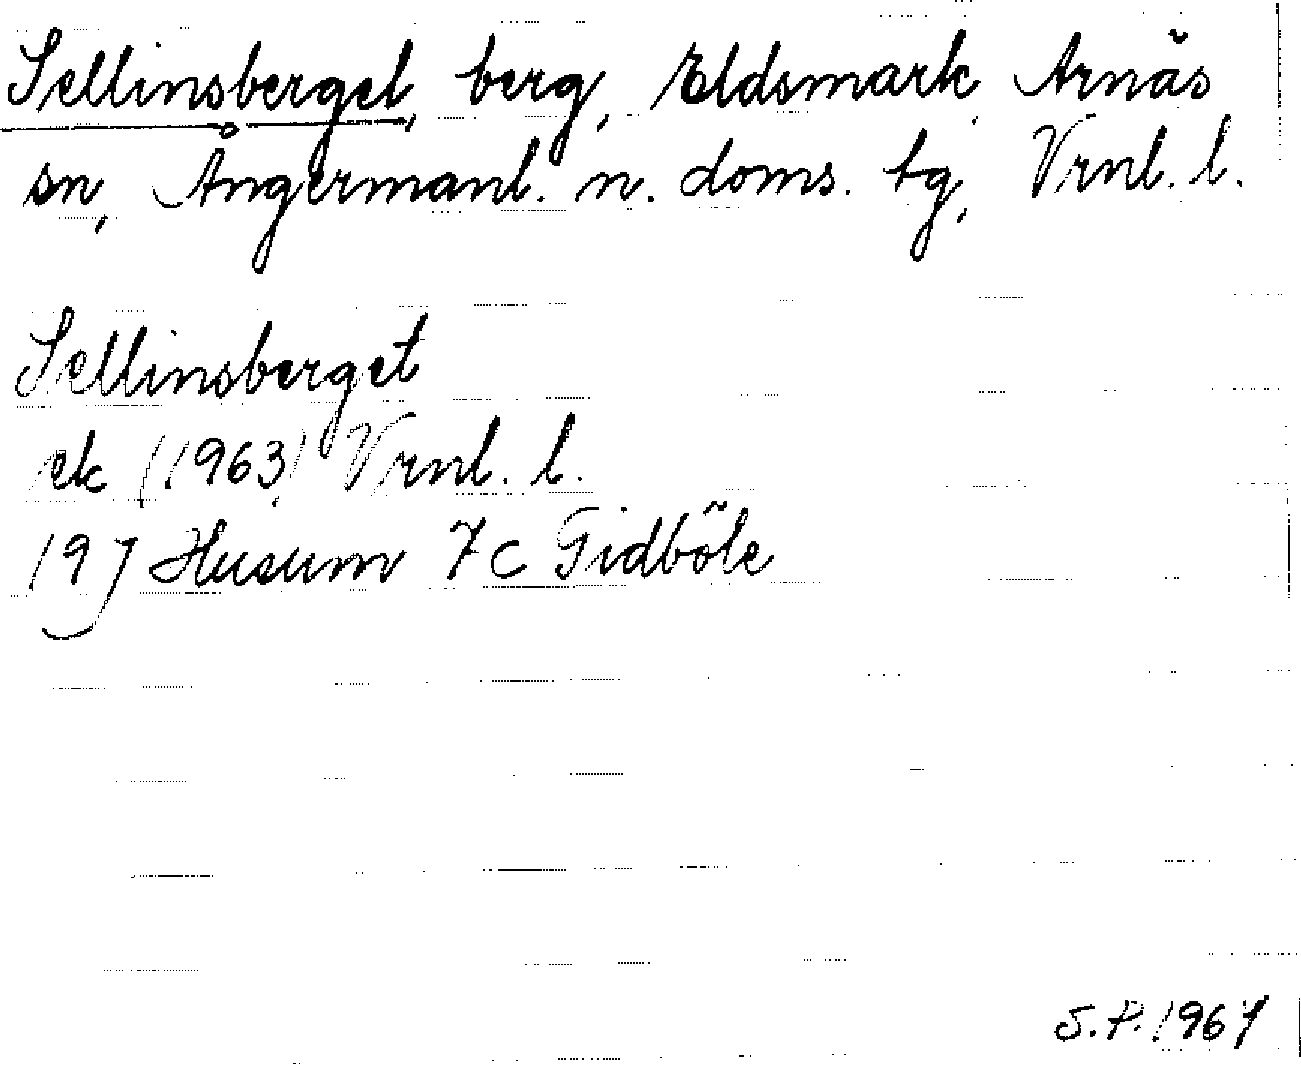 Sellinsberget, berg, Eldsmark, Arnäs
sn, Ångermanl. n. doms. tg, Vrnl. l.
Sellinsberget
ek (1963) Vrnl. l.
19J Husum 7c Gidböle
S.P. 1967